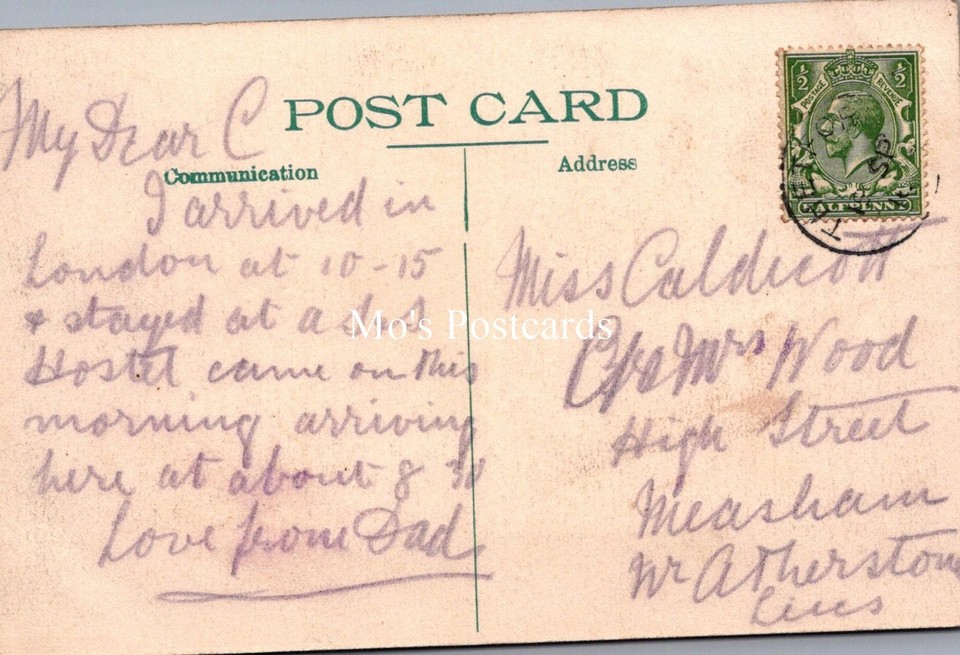 POST CARD
Communication
My Dear C
I arrived in
London at 10-15
& stayed at a
Hostel came on this
morning arriving
here at about 8 30
Love from Dad
Address
Miss Caldicott
Mrs Wood
High Street
Measham
Nr Atherstone
Leics
½ ½
POSTAGE REVENUE
HALFPENNY
Mo's Postcards